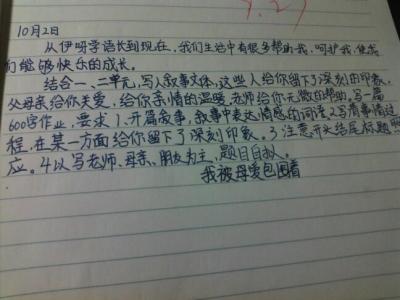 9.29
10月2日
从伊呀学语长到现在,我们生活中有很多帮助我,呵护我,使我
们能够快乐的成长。
结合一、二单元,写人叙事文体,这些人给你留下了深刻的印象。
父母亲给你关爱,给你亲情的温暖,老师给你无微的帮助。写一篇
600字作业,要求1、开篇叙事,叙事中表达情感的词语。2写清事情过
程,在某一方面给你留下了深刻印象。3注意开头结尾标题
应。4以写老师、母亲、朋友为主,题目自拟。
我被母爱包围着